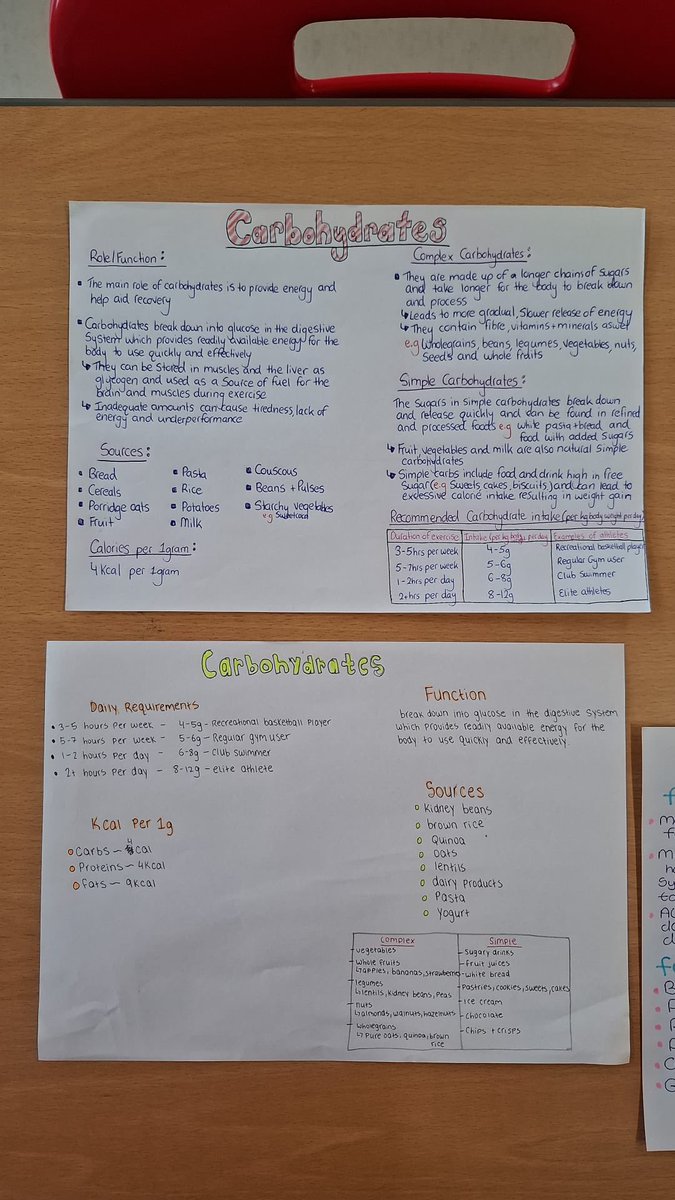 Carbohydrates
Role/Function:
• The main role of carbohydrates is to provide energy and
help aid recovery
• Carbohydrates break down into glucose in the digestive
System which provides readily available energy for the
body to use quickly and effectively
↳ They can be stored in muscles and the liver as
glycogen and used as a source of fuel for the
brain and muscles during exercise
↳ Inadequate amounts can cause tiredness, lack of
energy and underperformance
Sources:
• Bread
• Cereals
• Porridge oats
• Fruit
• Pasta
• Rice
• Potatoes
• Milk
• Couscous
• Beans + Pulses
• Starchy vegetables
e.g Sweetcorn
Calories per 1gram:
4 Kcal per 1gram
Complex Carbohydrates:
• They are made up of a longer chains of sugars
and take longer for the body to break down
and process
↳ Leads to more gradual, slower release of energy
↳ They contain fibre, vitamins + minerals aswell
e.g Wholegrains, beans, legumes, vegetables, nuts,
Seeds and whole fruits
Simple Carbohydrates:
The sugars in simple carbohydrates break down
and release quickly and can be found in refined
and processed foods e.g white pasta + bread and
food with added sugars
↳ Fruit, vegetables and milk are also natural simple
carbohydrates
↳ Simple carbs include food and drink high in free
sugar (e.g sweets, cakes, biscuits) and can lead to
excessive calorie intake resulting in weight gain
Recommended Carbohydrate intake (per kg body weight per day):
Duration of exercise | Intake (per kg body, per day) | Examples of athletes
3-5hrs per week | 4-5g | Recreational basketball player
5-7hrs per week | 5-6g | Regular Gym user
1-2hrs per day | 6-8g | Club Swimmer
2+hrs per day | 8-12g | Elite athletes
Carbohydrates
Daily Requirements
• 3-5 hours per week - 4-5g - Recreational basketball player
• 5-7 hours per week - 5-6g - Regular gym user
• 1-2 hours per day - 6-8g - Club swimmer
• 2+ hours per day - 8-12g - elite athlete
Kcal Per 1g
Carbs - 4cal
Proteins - 4Kcal
fats - 9Kcal
Function
break down into glucose in the digestive system
which provides readily available energy for the
body to use quickly and effectively.
Sources
kidney beans
brown rice
Quinoa
oats
lentils
dairy products
Pasta
Yogurt
Complex | Simple
- vegetables
- whole fruits
↳ apples, bananas, strawberries
- legumes
↳ lentils, kidney beans, peas
- nuts
↳ almonds, walnuts, hazelnuts
- wholegrains
↳ Pure oats, quinoa, brown
rice
- Sugary drinks
- fruit juices
- white bread
- Pastries, cookies, sweets, cakes
- ice cream
- chocolate
- Chips + crisps